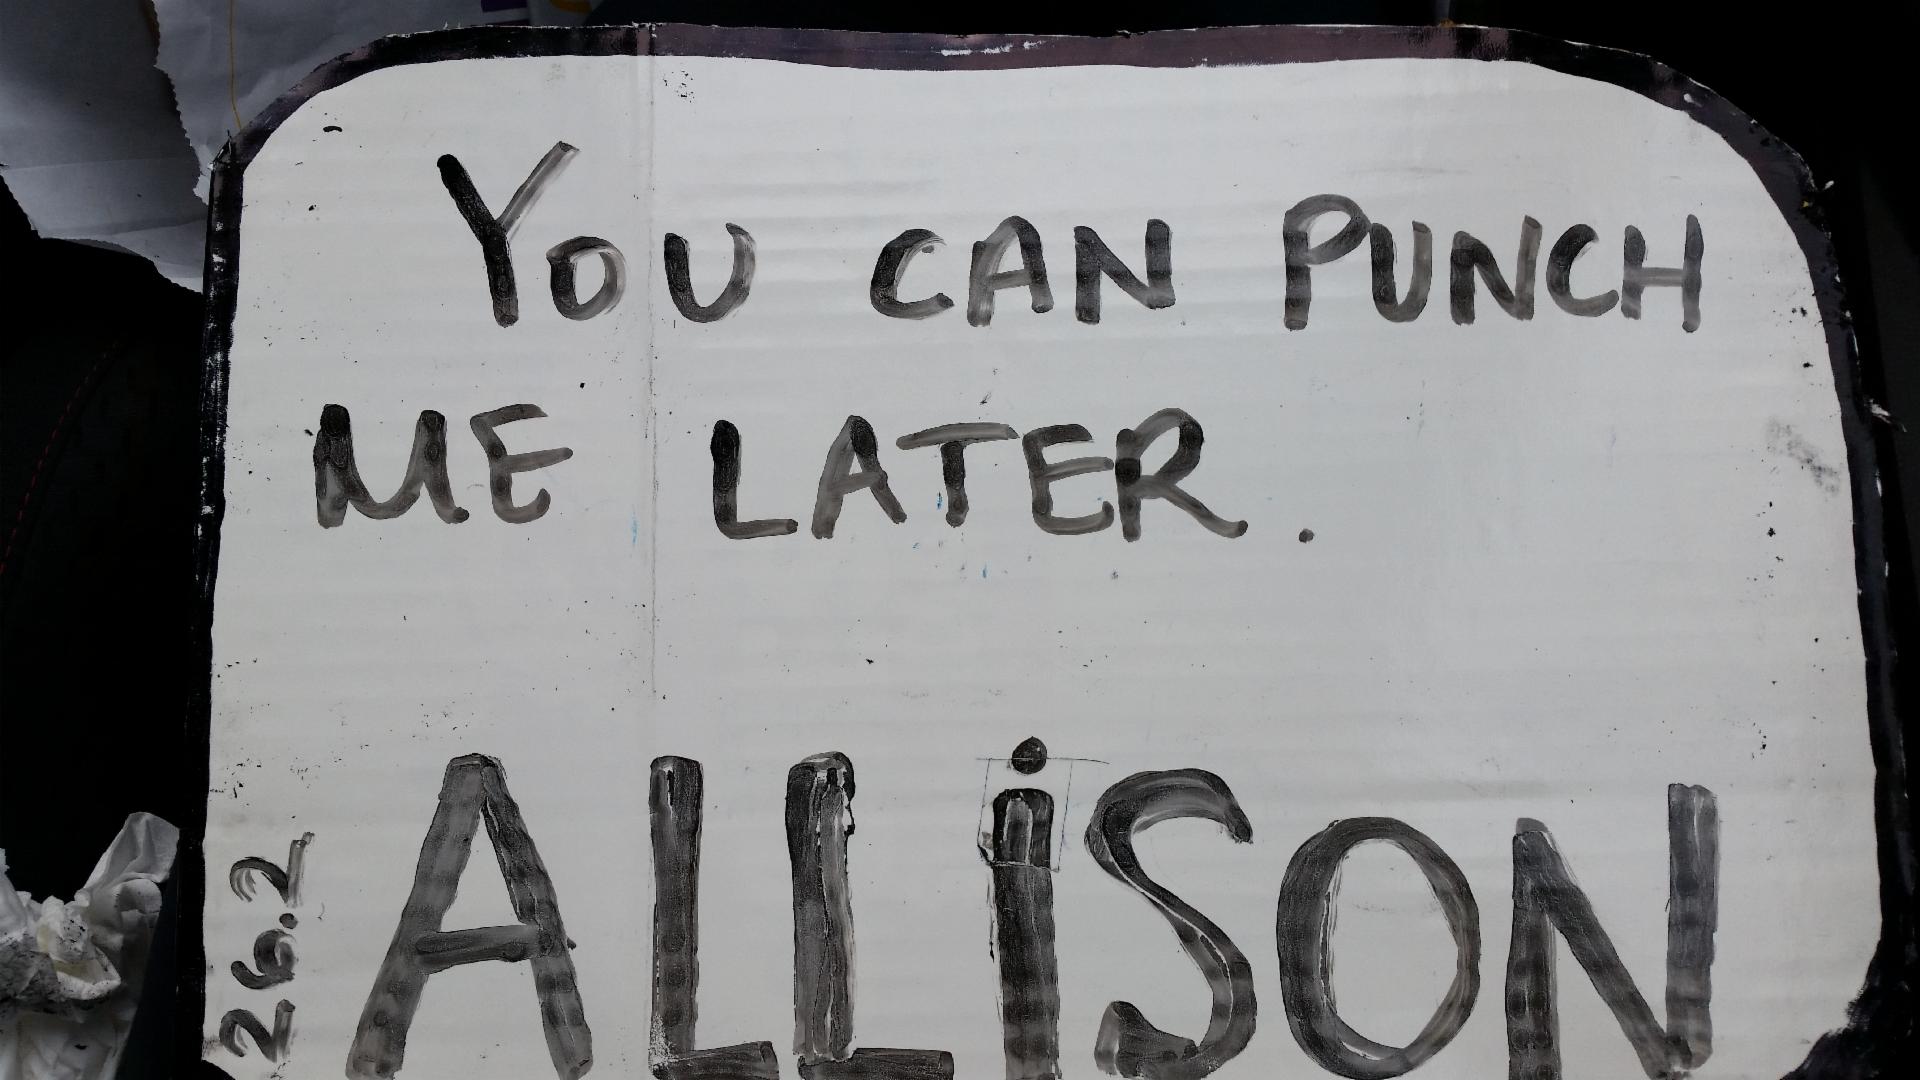 YOU CAN PUNCH
ME LATER.
26.2
ALLiSON